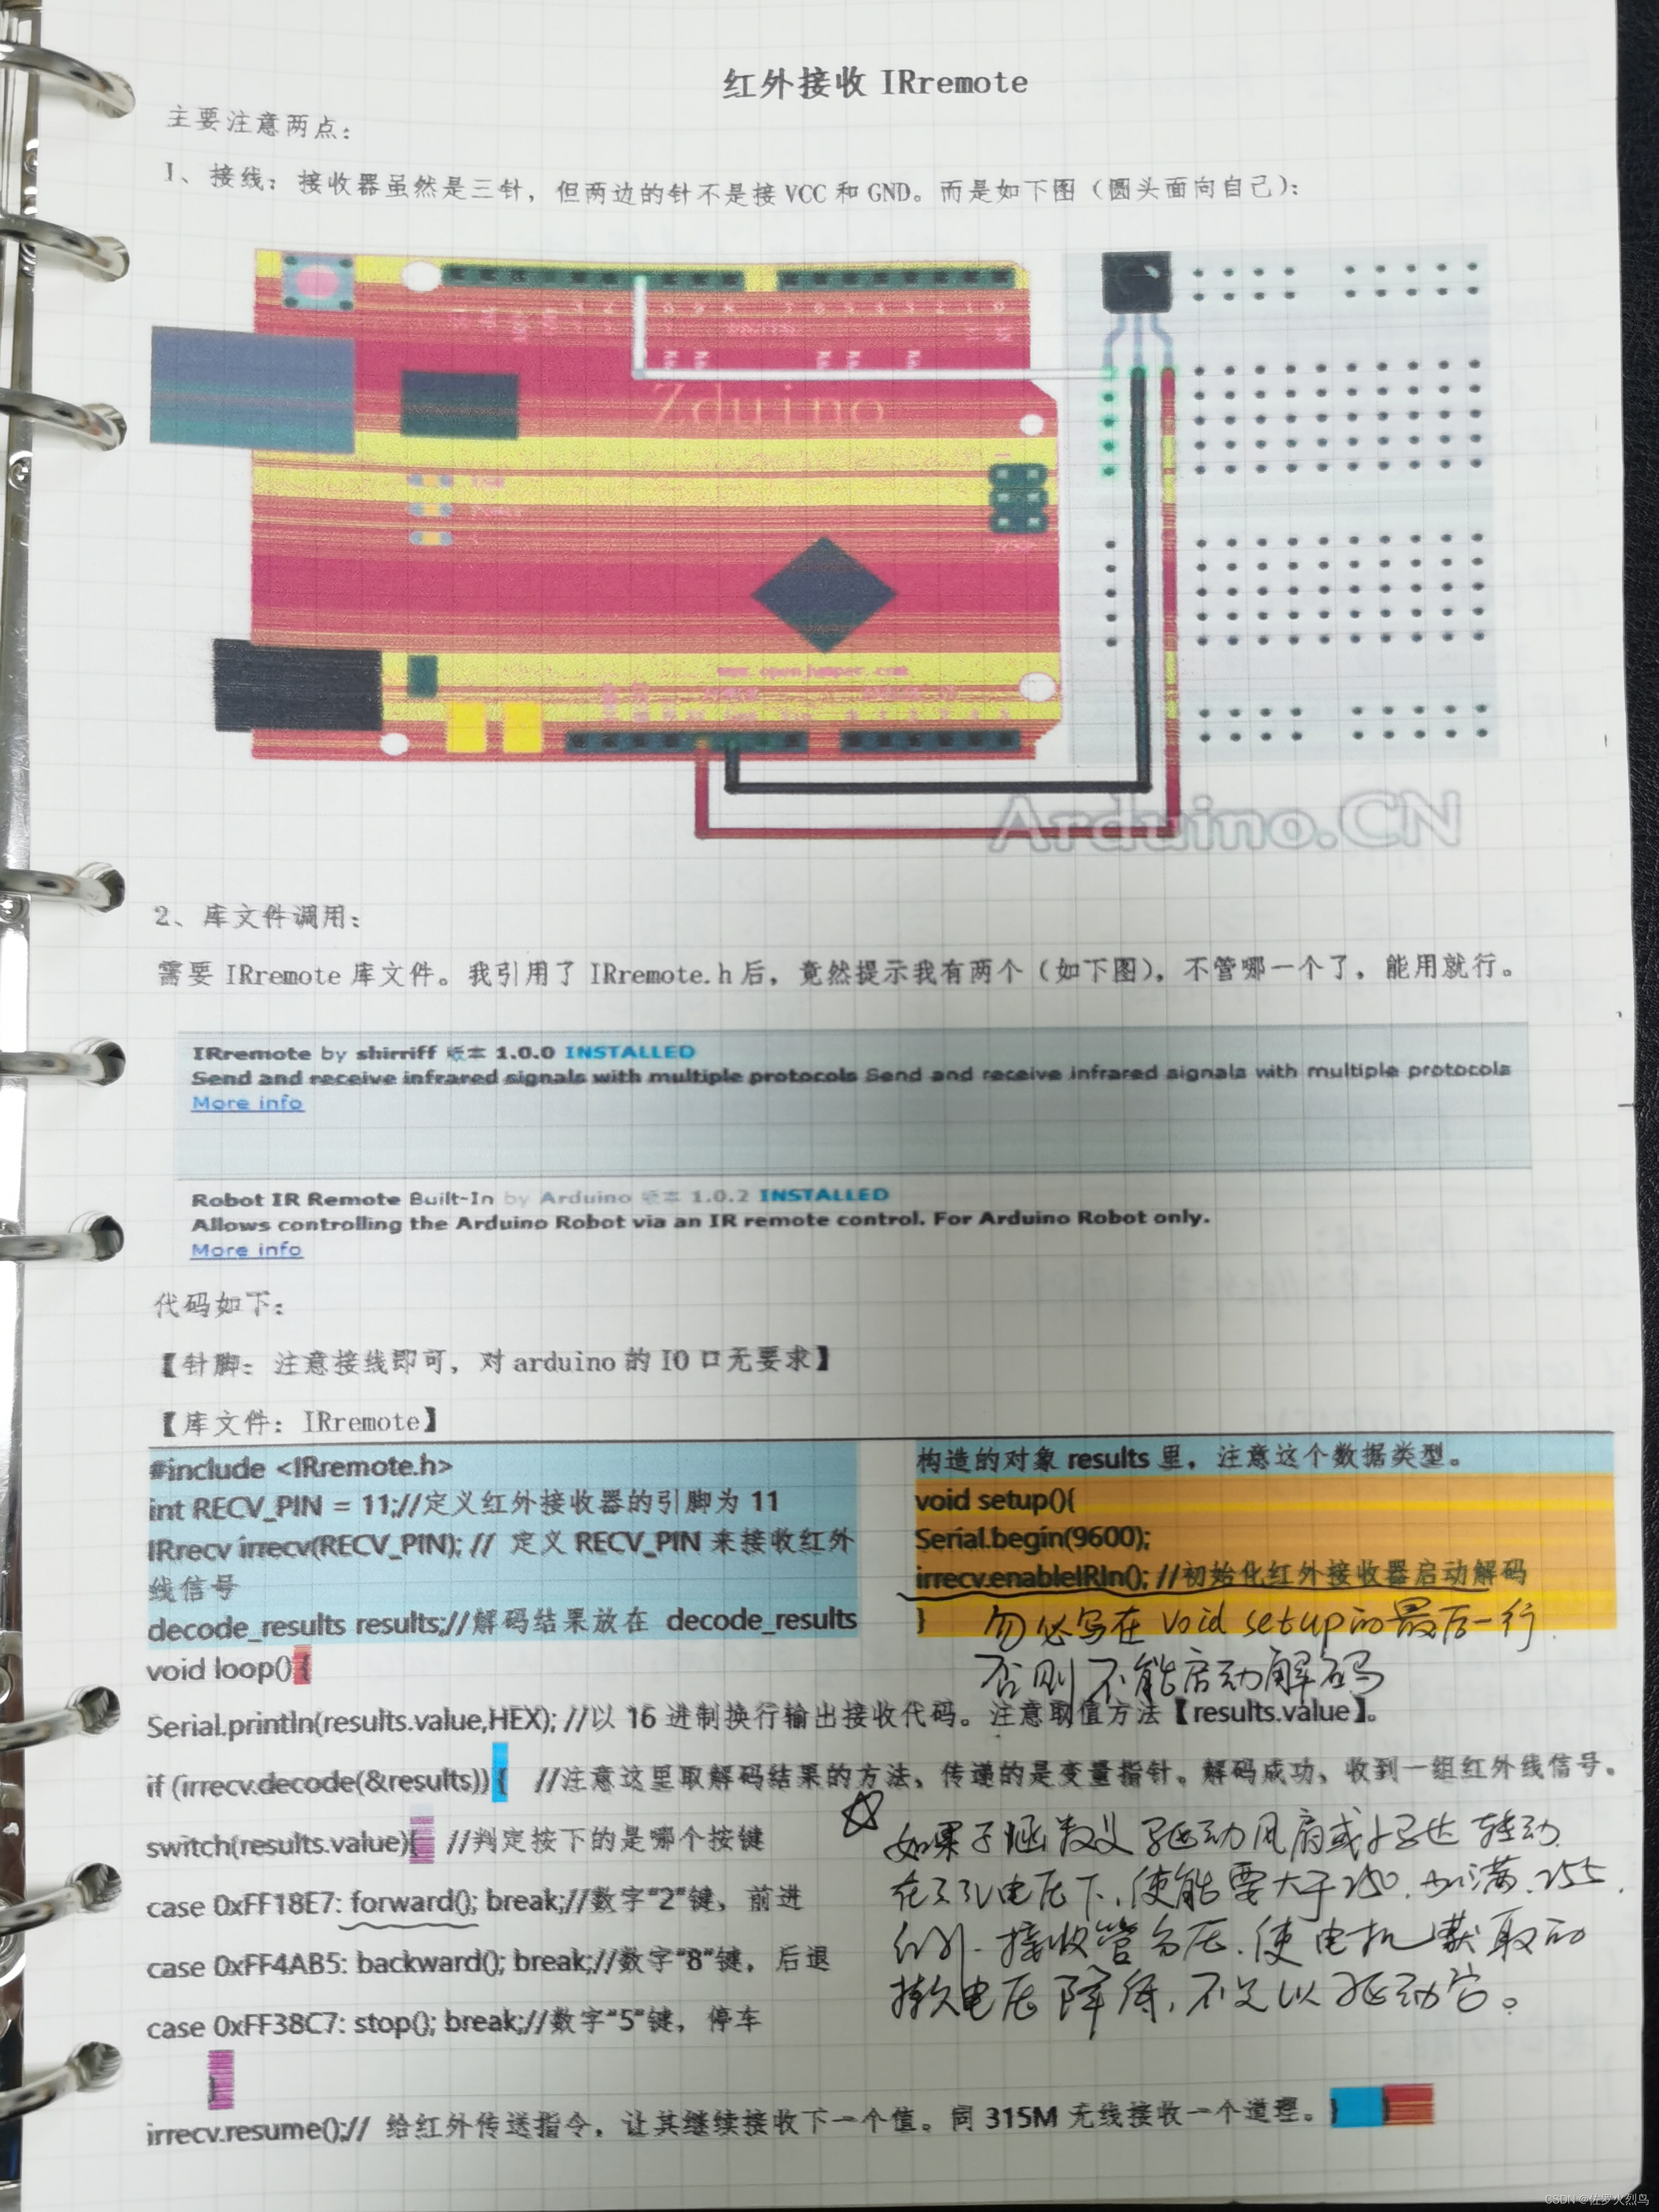 红外接收 IRremote
主要注意两点：
1、接线：接收器虽然是三针，但两边的针不是接 VCC 和 GND。而是如下图（圆头面向自己）：
Zduino
www.openjumper.com
Arduino.CN
2、库文件调用：
需要 IRremote 库文件。我引用了 IRremote.h 后，竟然提示我有两个（如下图），不管哪一个了，能用就行。
IRremote by shirriff 版本 1.0.0 INSTALLED
Send and receive infrared signals with multiple protocols Send and receive infrared signals with multiple protocols
More info
Robot IR Remote Built-In by Arduino 版本 1.0.2 INSTALLED
Allows controlling the Arduino Robot via an IR remote control. For Arduino Robot only.
More info
代码如下：
【针脚：注意接线即可，对 arduino 的 IO 口无要求】
【库文件：IRremote】
#include <IRremote.h>
int RECV_PIN = 11;//定义红外接收器的引脚为 11
IRrecv irrecv(RECV_PIN); // 定义 RECV_PIN 来接收红外
线信号
decode_results results;//解码结果放在 decode_results
构造的对象 results 里，注意这个数据类型。
void setup(){
Serial.begin(9600);
irrecv.enableIRIn(); //初始化红外接收器启动解码
}
勿必写在 void setup的最后一行
否则不能启动解码
void loop() {
Serial.println(results.value,HEX); //以 16 进制换行输出接收代码。注意取值方法【results.value】。
if (irrecv.decode(&results)) { //注意这里取解码结果的方法，传递的是变量指针。解码成功，收到一组红外线信号。
switch(results.value){ //判定按下的是哪个按键
case 0xFF18E7: forward(); break;//数字"2"键，前进
case 0xFF4AB5: backward(); break;//数字"8"键，后退
case 0xFF38C7: stop(); break;//数字"5"键，停车
}
☆如果子函数义驱动风扇或马达转动
在3.3V电压下，使能要大于250，如满255.
红外接收管分压，使电机获取的
持久电压降低，不足以驱动它。
irrecv.resume();// 给红外传送指令，让其继续接收下一个值。同 315M 无线接收一个道理。} }
CSDN @佐罗火烈鸟